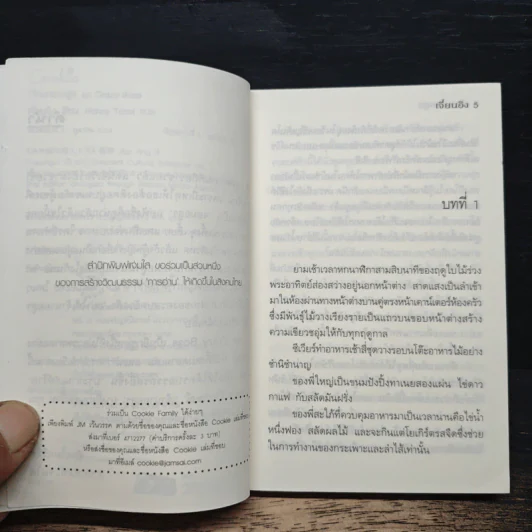 สำนักพิมพ์แจ่มใส ขอร่วมเป็นส่วนหนึ่ง
ของการสร้างวัฒนธรรม 'การอ่าน' ให้เกิดขึ้นในสังคมไทย
ร่วมเป็น Cookie Family ได้ง่ายๆ
เพียงพิมพ์ JM เว้นวรรค ตามด้วยชื่อของคุณและชื่อหนังสือ Cookie เล่มที่ชอบ
ส่งมาที่เบอร์ 4712377 (ค่าบริการครั้งละ 3 บาท)
หรือส่งชื่อของคุณและชื่อหนังสือ Cookie เล่มที่ชอบ
มาที่อีเมล์ cookie@jamsai.com
เจี่ยนอิง 5
บทที่ 1
ยามเช้าเวลาหกนาฬิกาสามสิบนาทีของฤดูใบไม้ร่วง
พระอาทิตย์ส่องสว่างอยู่นอกหน้าต่าง สาดแสงเป็นลำเข้า
มาในห้องผ่านทางหน้าต่างบานคู่ตรงหน้าเคาน์เตอร์ห้องครัว
ซึ่งมีพันธุ์ไม้วางเรียงรายเป็นแถวบนขอบหน้าต่างสร้าง
ความเขียวชอุ่มให้กับทุกฤดูกาล
ซีเวียร์ทำอาหารเช้าสี่ชุดวางรอบนโต๊ะอาหารไม้อย่าง
ชำนิชำนาญ
ของพี่ใหญ่เป็นขนมปังปิ้งทาเนยสองแผ่น ไข่ดาว
กาแฟ กับสลัดมันฝรั่ง
ของพี่สะใภ้ที่ควบคุมอาหารมาเป็นเวลานานคือไข่น้ำ
หนึ่งฟอง สลัดผลไม้ และจะกินแต่โยเกิร์ตรสจืดซึ่งช่วย
ในการทำงานของกระเพาะและลำไส้เท่านั้น